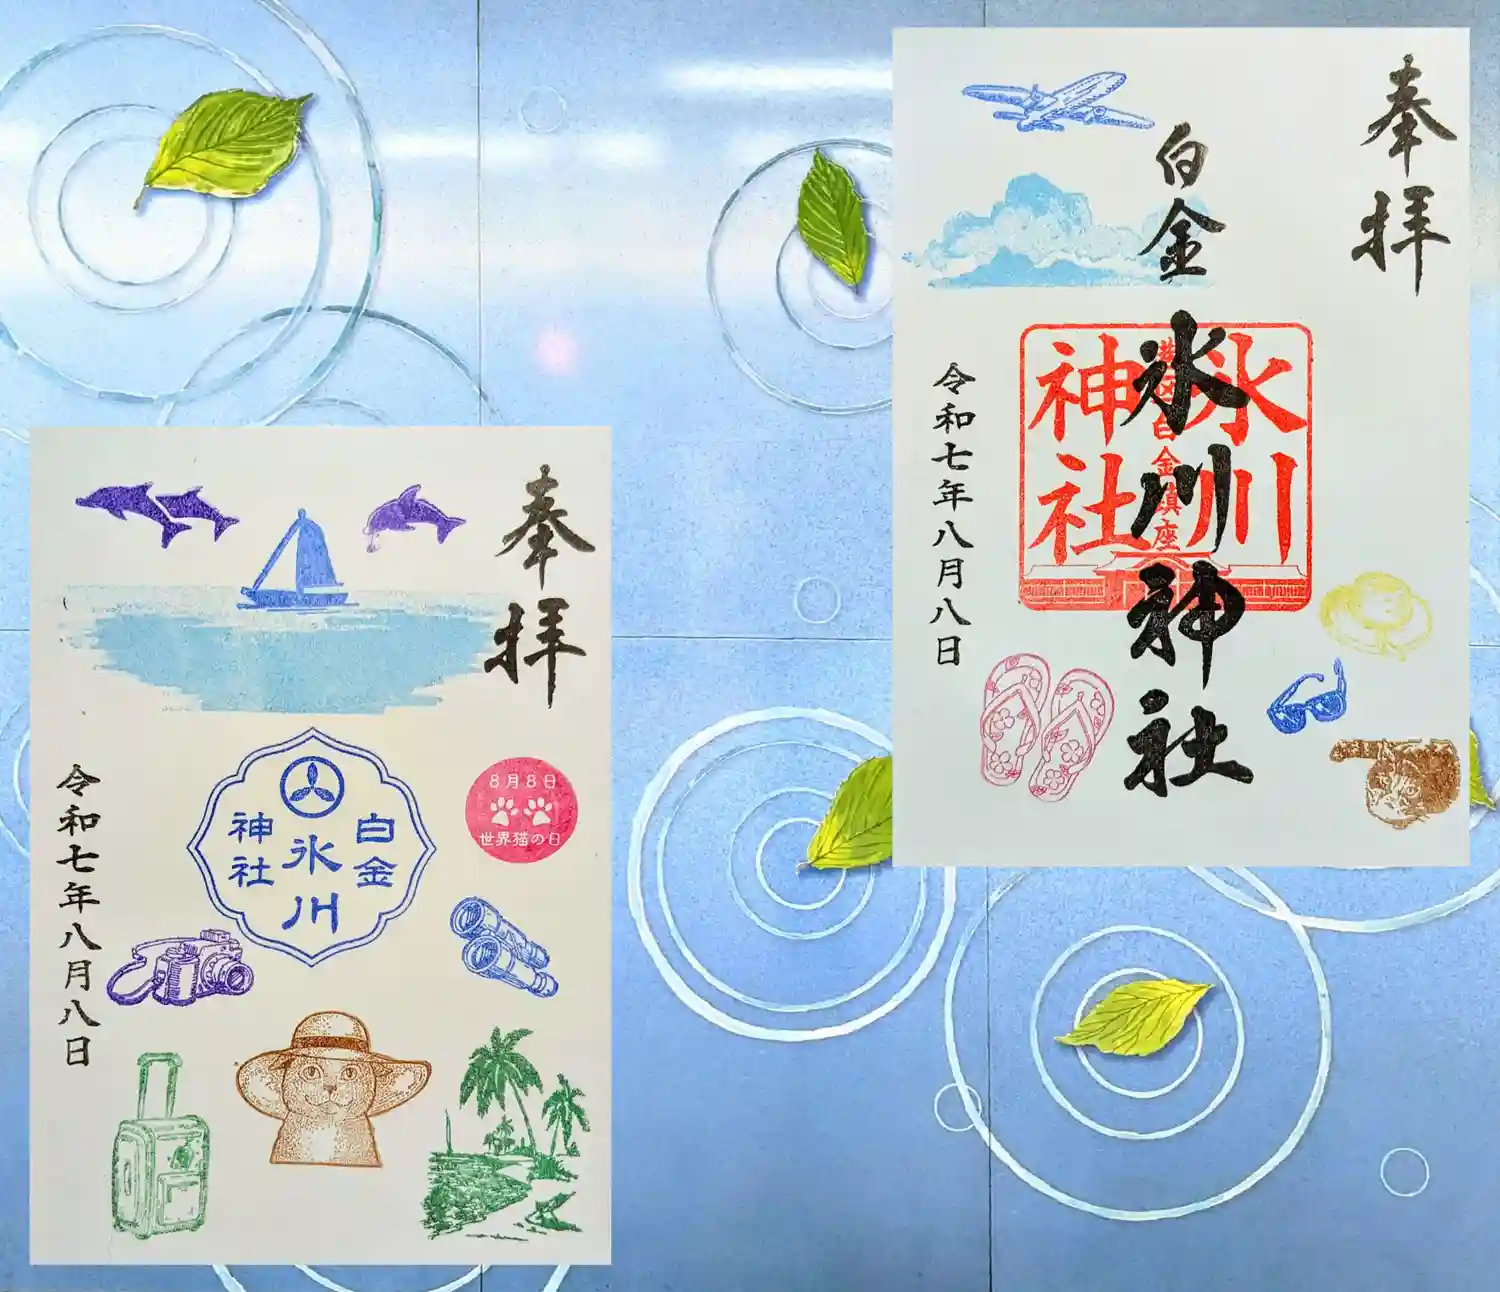 奉拝
白金
氷川神社
氷川
神社
港区白金鎮座
令和七年八月八日
奉拝
白金
氷川
神社
8月8日
世界猫の日
令和七年八月八日